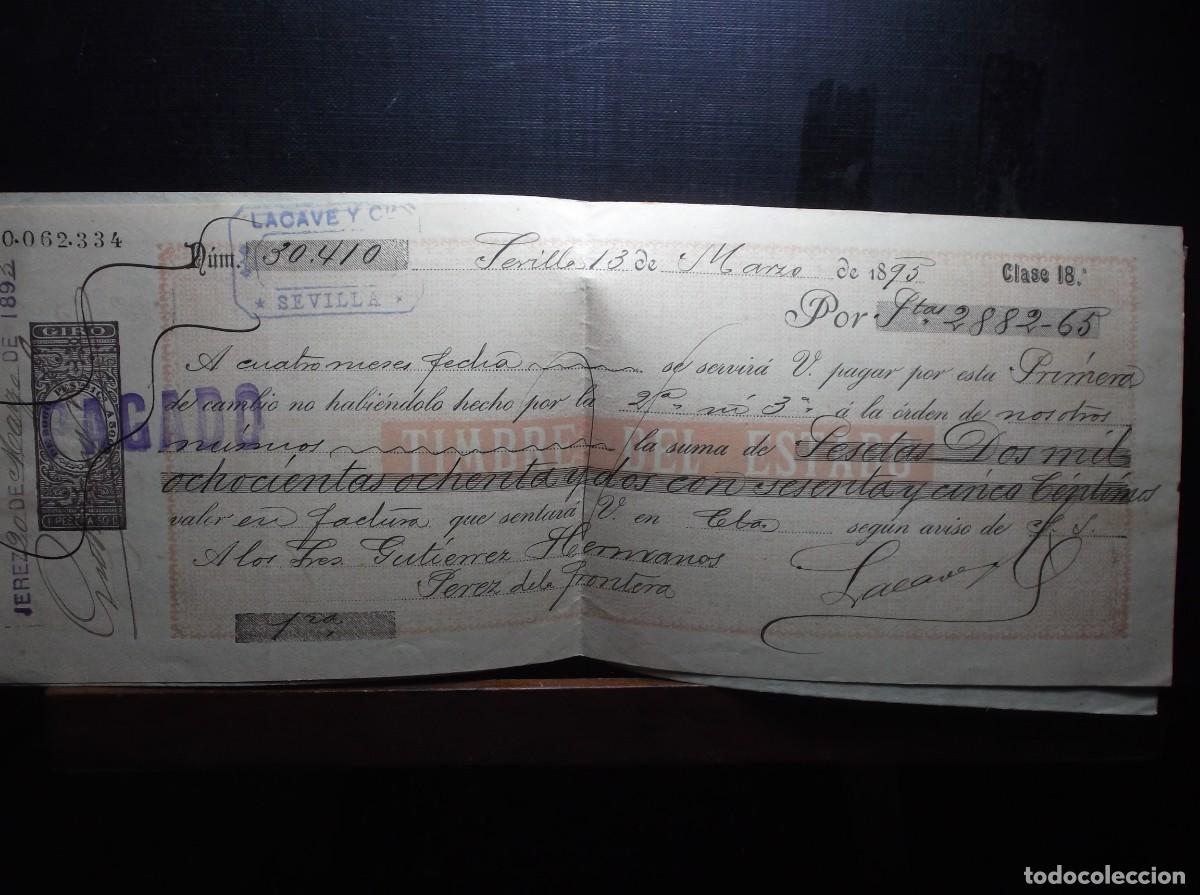 0.062.334
LACAVE Y Cía
Núm. 30.410 Sevilla 13 de Marzo de 1895 Clase 18.ª
* SEVILLA *
Por Ptas 2882-65
A cuatro meses fecha se servirá V. pagar por esta Primera
de cambio no habiéndolo hecho por la 2ª ni 3ª á la órden de nosotros
mismos la suma de Pesetas Dos mil
ochocientas ochenta y dos con sesenta y cinco Céntimos
valor en factura que sentará V. en Cta según aviso de S. S.
A los Sres. Gutiérrez Hermanos
Jerez de la Frontera
Lacave
1ra
TIMBRE DEL ESTADO
GIRO
PAGADO
JEREZ 20 DE DE 189
todocoleccion.net